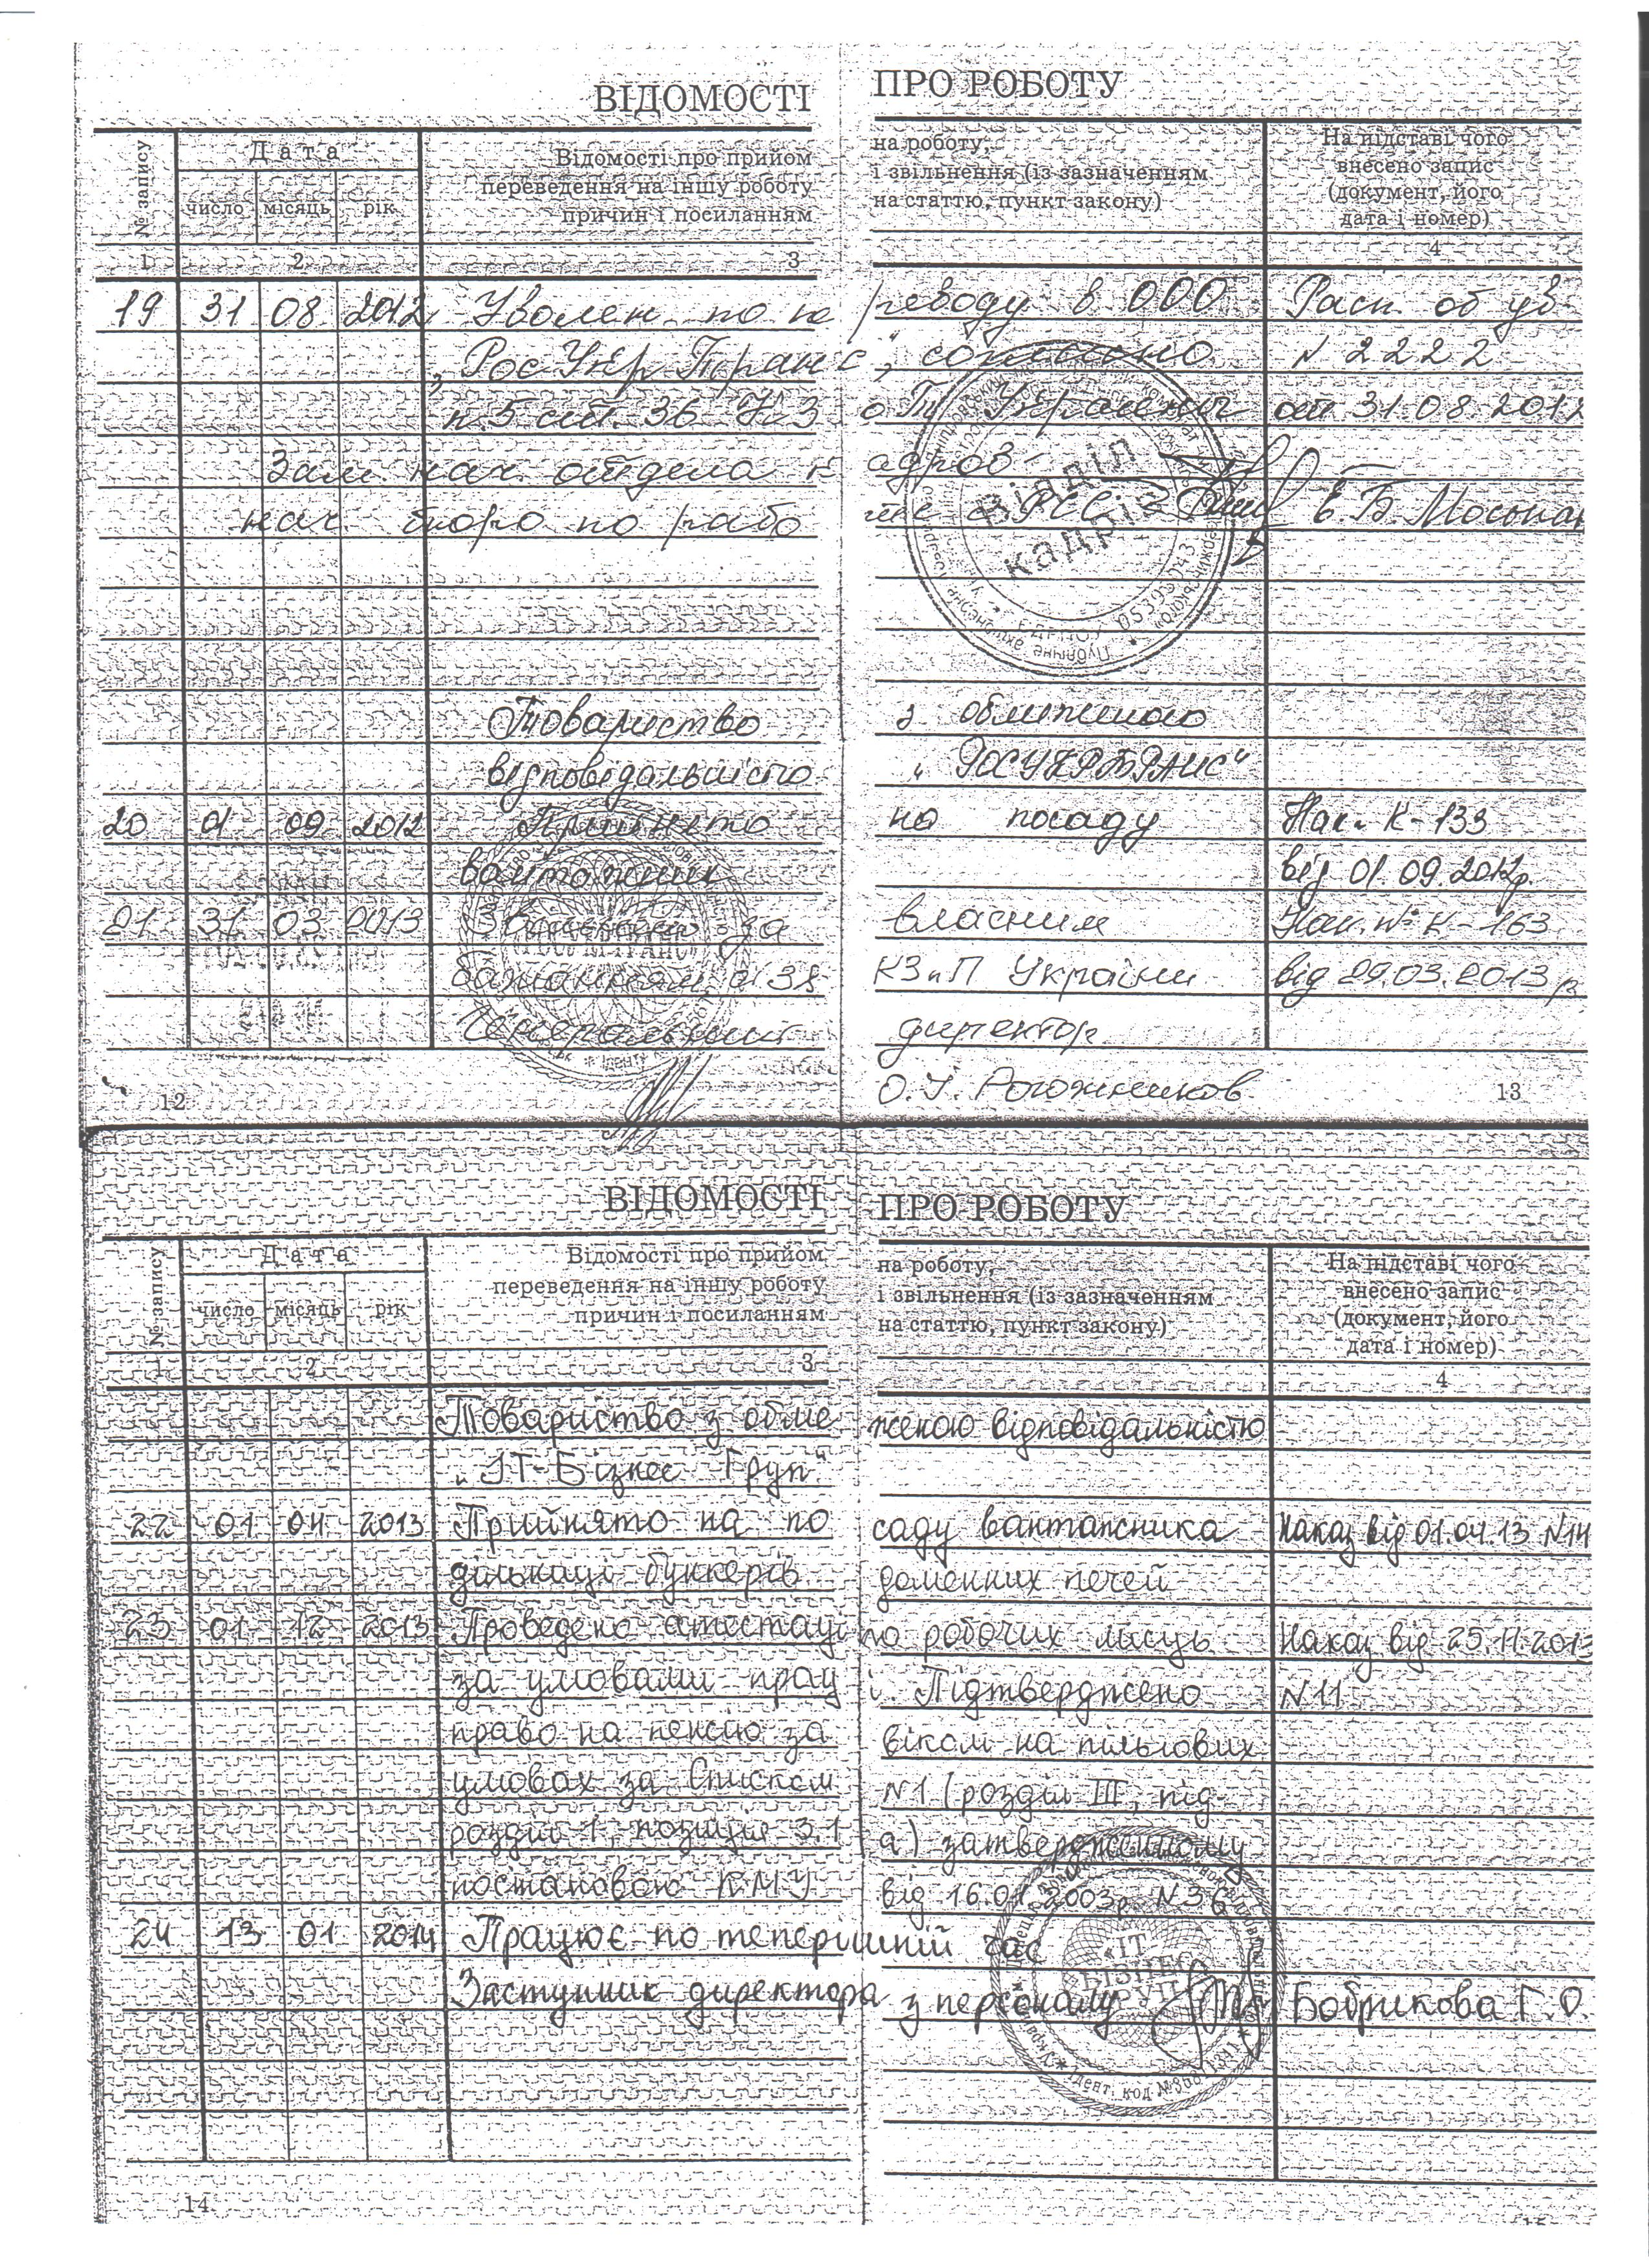 ВІДОМОСТІ ПРО РОБОТУ
№ запису
Дата
число місяць рік
Відомості про прийом на роботу,
переведення на іншу роботу і звільнення (із зазначенням
причин і посиланням на статтю, пункт закону)
На підставі чого
внесено запис
(документ, його
дата і номер)
1 2 3 4
19 31 08 2012 Уволен по переводу в ООО Расп. об ув
„РосУкрТранс", согласно N 2222
п.5 ст. 36 КЗоТу Украины от 31.08.2012
Зам. нач. отдела кадров
нач. бюро по работе с РСС Е.Б.
Відділ
кадрів
Товариство з обмеженою
відповідальністю „РОСУКРТРАНС"
20 01 09 2012 Прийнято на посаду Нак. К-133
вантажник від 01.09.2012р.
21 31 03 2013 Звільнено за власним Нак. № К-163
бажанням ст 38 КЗпП України від 29.03.2013 р
Генеральний директор
О.І. Рогожников
12 13
ВІДОМОСТІ ПРО РОБОТУ
№ запису
Дата
число місяць рік
Відомості про прийом на роботу,
переведення на іншу роботу і звільнення (із зазначенням
причин і посиланням на статтю, пункт закону)
На підставі чого
внесено запис
(документ, його
дата і номер)
1 2 3 4
Товариство з обмеженою відповідальністю
„ІТ-Бізнес Груп"
22 01 04 2013 Прийнято на посаду вантажника Наказ від 01.04.13 N14
дільниці бункерів доменних печей
23 01 12 2013 Проведено атестацію робочих місць Наказ від 25.11.2013
за умовами праці. Підтверджено N11
право на пенсію за віком на пільгових
умовах за Списком N1 (розділ III, під-
розділ 1, позиція 3.1 а) затвердженному
постановою КМУ від 16.01.2003р. N36
24 13 01 2014 Працює по теперішній час
Заступник директора з персоналу Бобрикова Г.О.
«ІТ
БІЗНЕС
ГРУП»
14